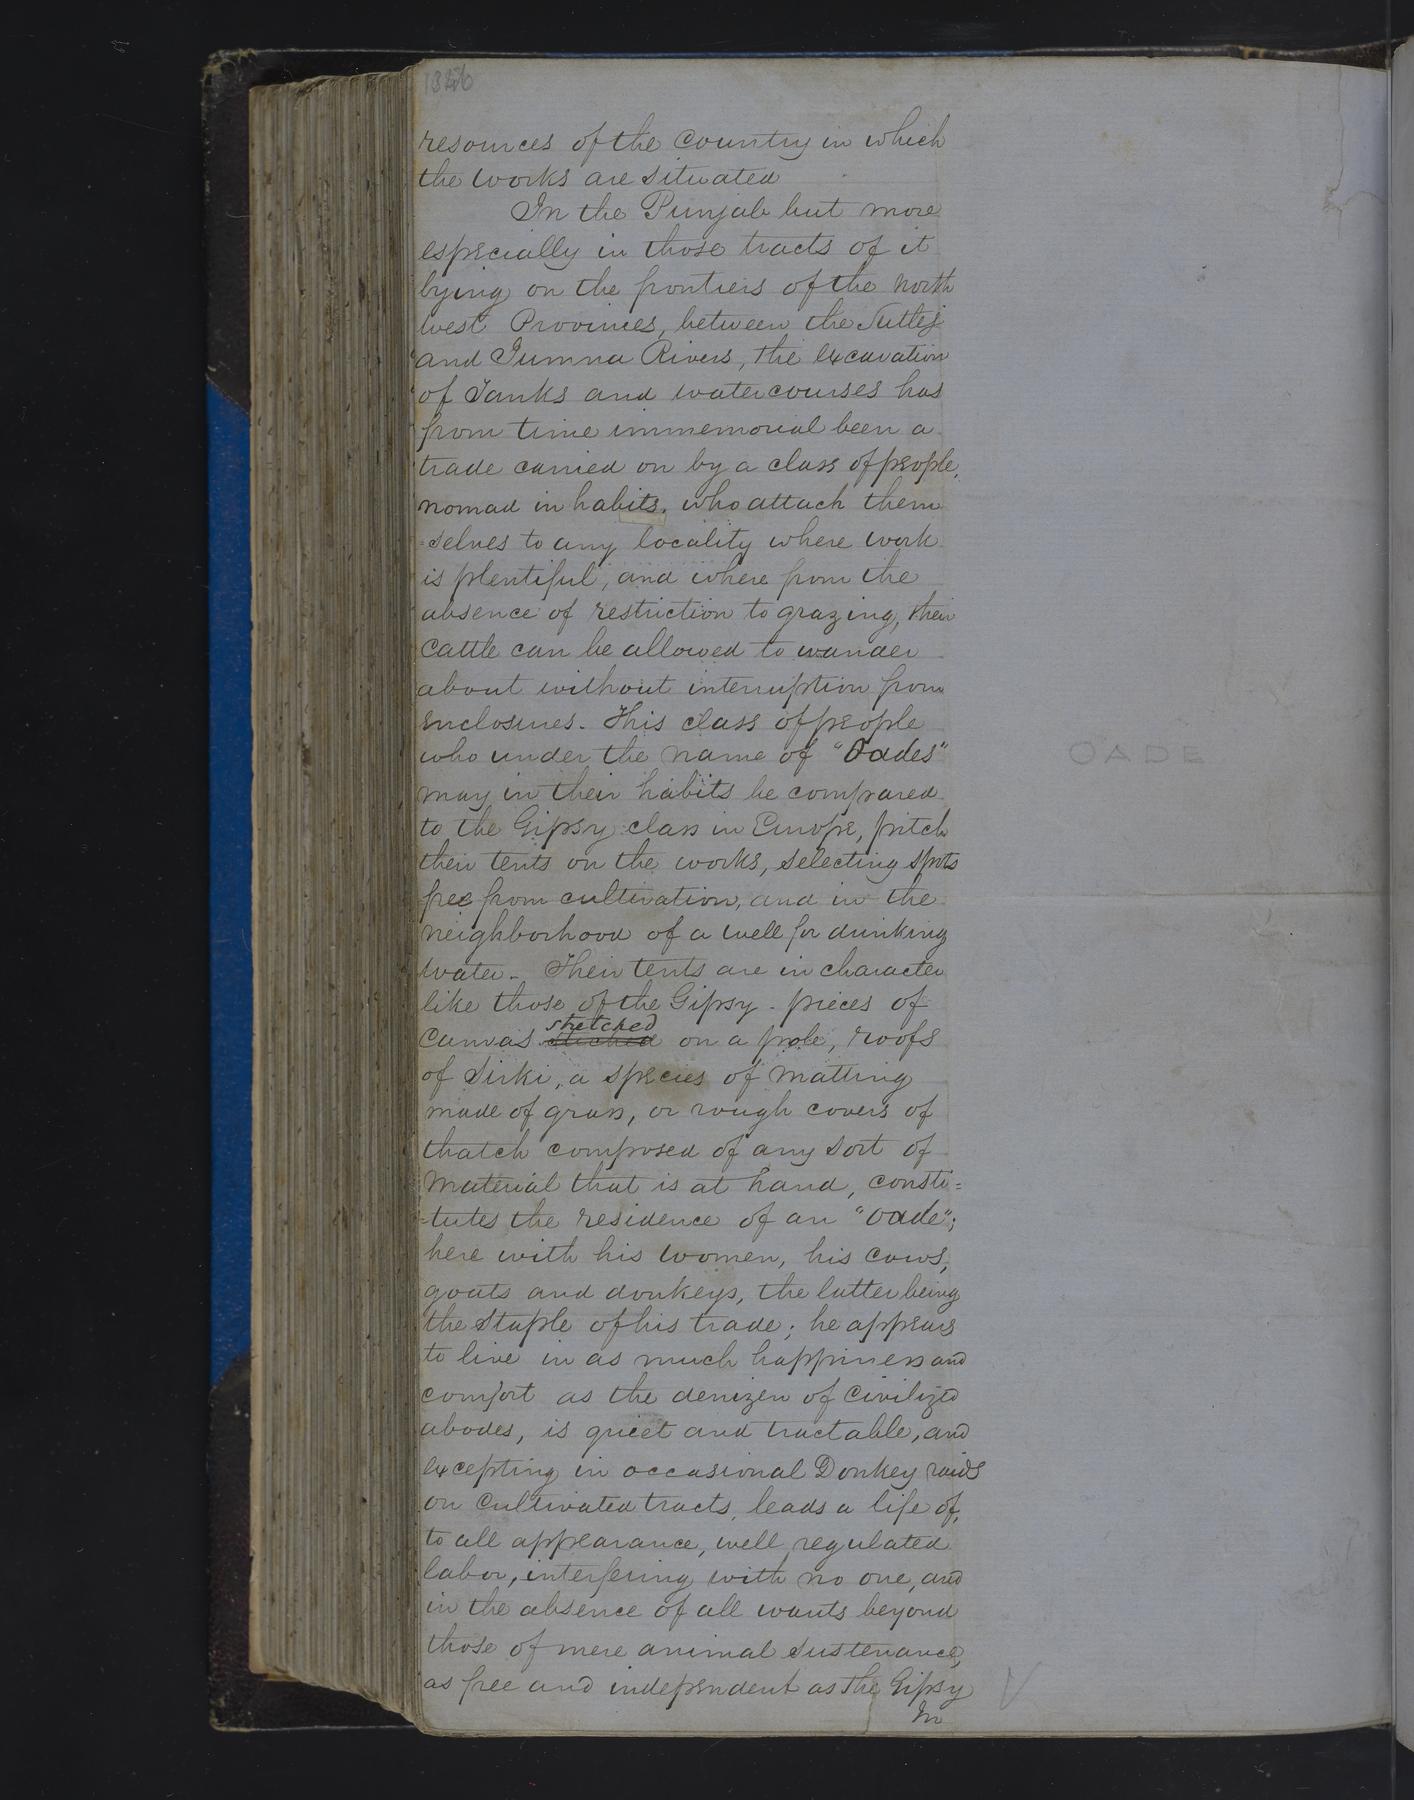 resources of the Country in which
the works are situated
In the Punjab but more
especially in those tracts of it
lying on the frontiers of the North
West Provinces, between the Sutlej
and Jumna Rivers, the excavation
of Tanks and watercourses has
from time immemorial been a
trade carried on by a class of people,
nomad in habits, who attach them
=selves to any locality where work
is plentiful, and where from the
absence of restriction to grazing, their
Cattle can be allowed to wander
about without interruption from
enclosures. This class of people
who under the name of "Oades"
OADE
may in their habits be compared
to the Gipsy class in Europe, pitch
their tents on the works, selecting spots
free from cultivation, and in the
neighborhood of a well for drinking
water. Their tents are in character
like those of the Gipsy - pieces of
stretched
Canvas on a pole, roofs
of Sirki, a species of matting
made of grass, or rough covers of
thatch composed of any sort of
Material that is at hand, consti=
=tutes the residence of an "Oade";
here with his women, his cows,
goats and donkeys, the latter being
the Staple of his trade; he appears
to live in as much happiness and
comfort as the denizen of Civilized
abodes, is quiet and tractable, and
excepting in occasional Donkey raids
on Cultivated tracts, leads a life of,
to all appearance, well regulated
labor, interfering with no one, and
in the absence of all wants beyond
those of mere animal sustenance,
as free and independent as the Gipsy
In